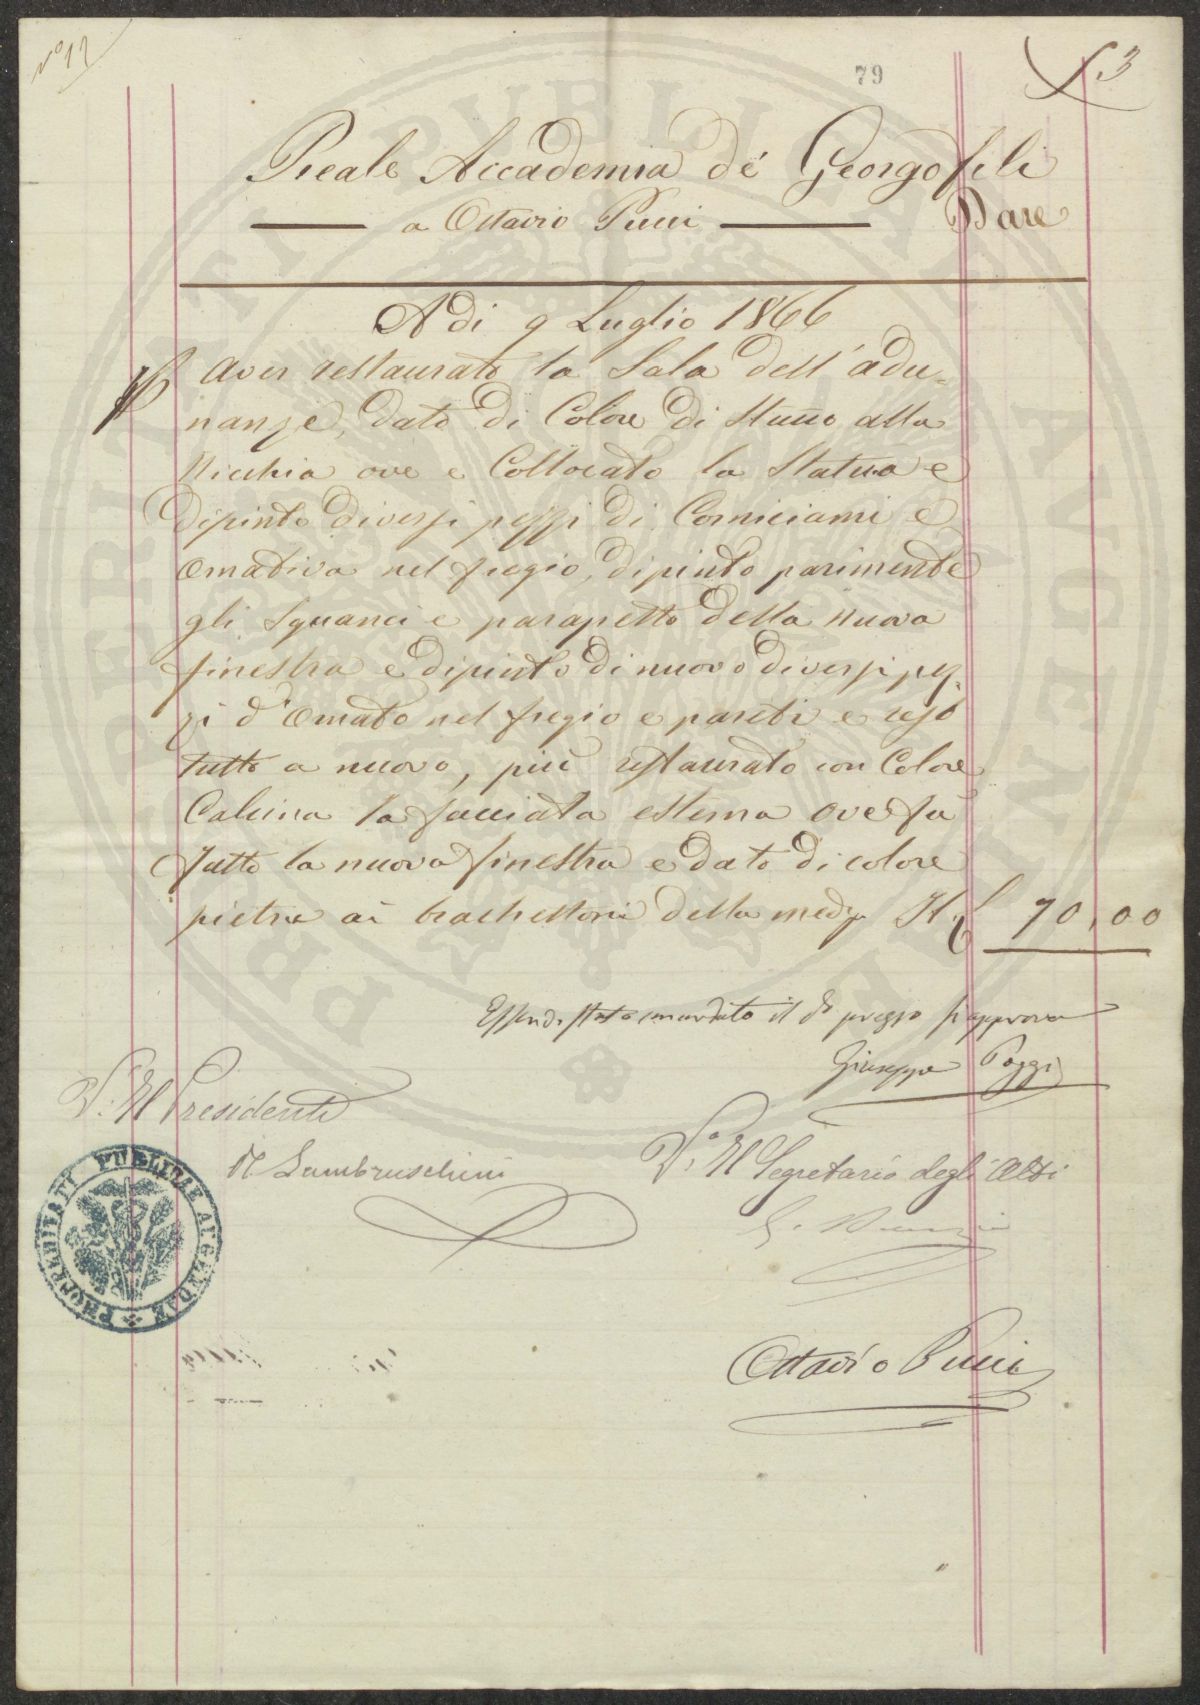 N° 12
79
£ 3
Reale Accademia de' Georgofili
a Ottavio Pucci Dare
A di 9 Luglio 1866
Aver restaurato la Sala dell'adu-
nanze, dato di Colore di Stucco alla
Nicchia ove e Collocato la Statua e
dipinto diversi pezzi di Corniciami e
ornativa nel fregio, dipinto parimente
gli Sguanci e parapetto della nuova
finestra e dipinto di nuovo diversi pez-
zi d'ornato nel fregio e pareti e reso
tutto a nuovo, più restaurato con Colore
Calcina la facciata esterna ove fu
fatto la nuova finestra e dato di colore
pietra ai bachettoni della med.a It. £ 70,00
Essendo stato concordato il do prezzo si approva
Giuseppe Poggi
V.° Il Presidente
R Lambruschini
V.° Il Segretario degli Atti
Ottavio Pucci
PROSPERITATI PUBLICAE AUGENDAE